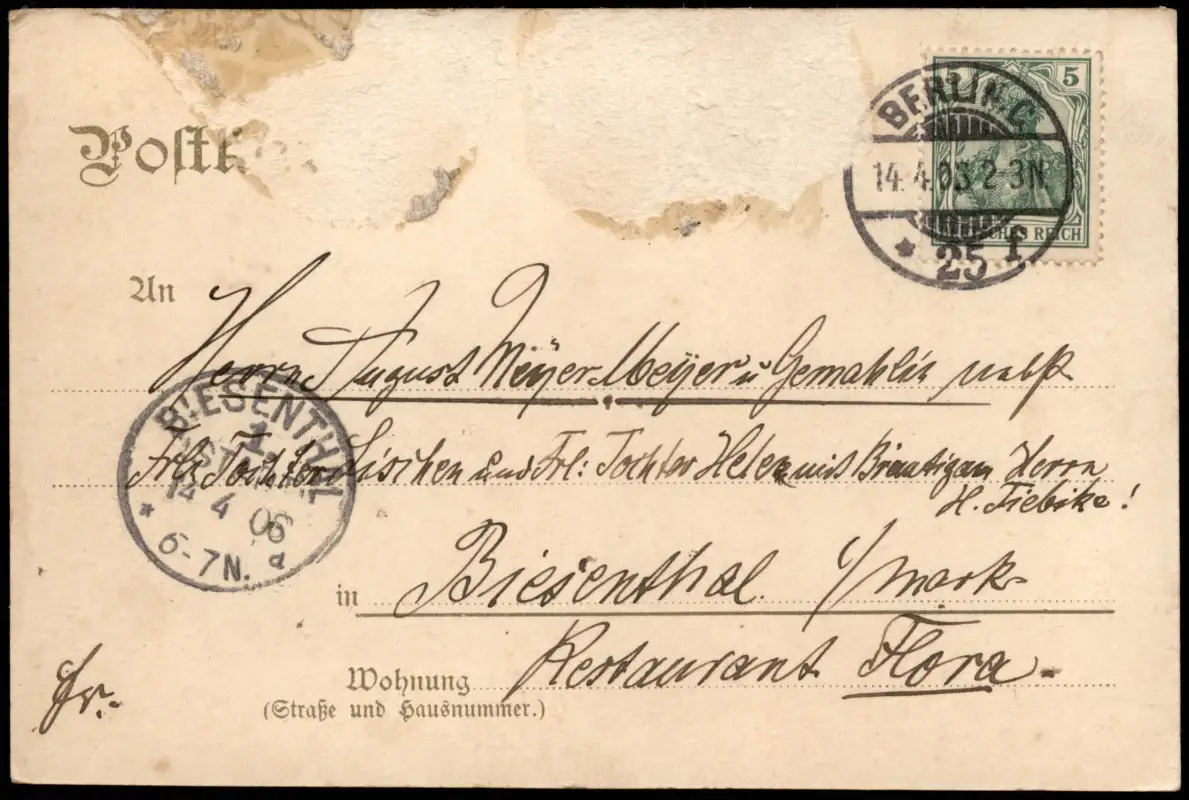 Postk
5
DEUTSCHES REICH
BERLIN. C.
14. 4. 03. 2-3N.
* 25 f
An
Herrn August Meyer Meyer u Gemahlin nebst
Frl: Tochter Lischen und Frl: Tochter Helen mit Breutigam Herrn
H. Fiebike!
BIESENTHAL
1.
14 4 06
* 6-7N. a
in Biesenthal i/mark
Restaurant Flora.
Wohnung
(Straße und Hausnummer.)
Fr.